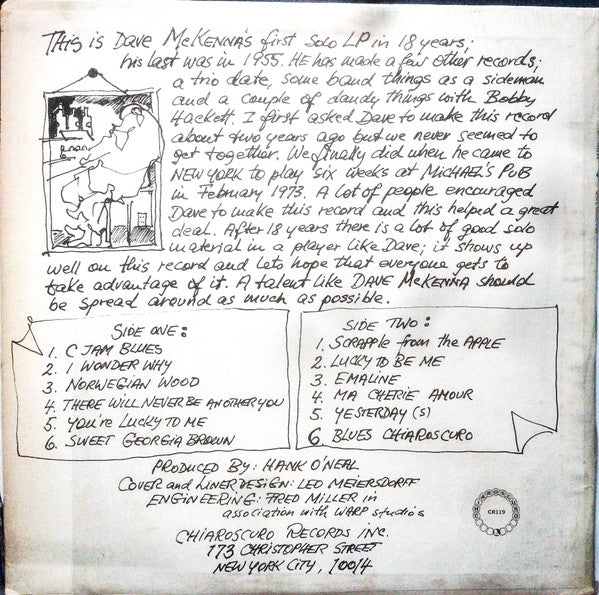 THIS is DAVE McKENNA'S first Solo LP in 18 years;
his last was in 1955. HE has made a few other records;
a trio date, some band things as a sideman
and a couple of dandy things with Bobby
Hackett. I first asked Dave to make this record
about two years ago but we never seemed to
get together. We finally did when he came to
NEW YORK to play six weeks at MICHAEL'S PUB
in February 1973. A lot of people encouraged
Dave to make this record and this helped a great
deal. After 18 years there is a lot of good solo
material in a player like Dave; it shows up
well on this record and lets hope that everyone gets to
take advantage of it. A talent like DAVE McKENNA should
be spread around as much as possible.
SIDE ONE:
1. C JAM BLUES
2. I WONDER WHY
3. NORWEGIAN WOOD
4. THERE WILL NEVER BE ANOTHER YOU
5. You're LUCKY TO ME
6. SWEET GEORGIA BROWN
SIDE TWO:
1. SCRAPPLE from the APPLE
2. LUCKY TO BE ME
3. EMALINE
4. MA CHERIE AMOUR
5. YESTERDAY(S)
6. BLUES CHIAROSCURO
PRODUCED BY: HANK O'NEAL
COVER and LINER DESIGN: LEO MEIERSDORFF
ENGINEERING: FRED MILLER in
association with WARP studios
CHIAROSCURO RECORDS INC.
173 CHRISTOPHER STREET
NEW YORK CITY, 10014
CR119